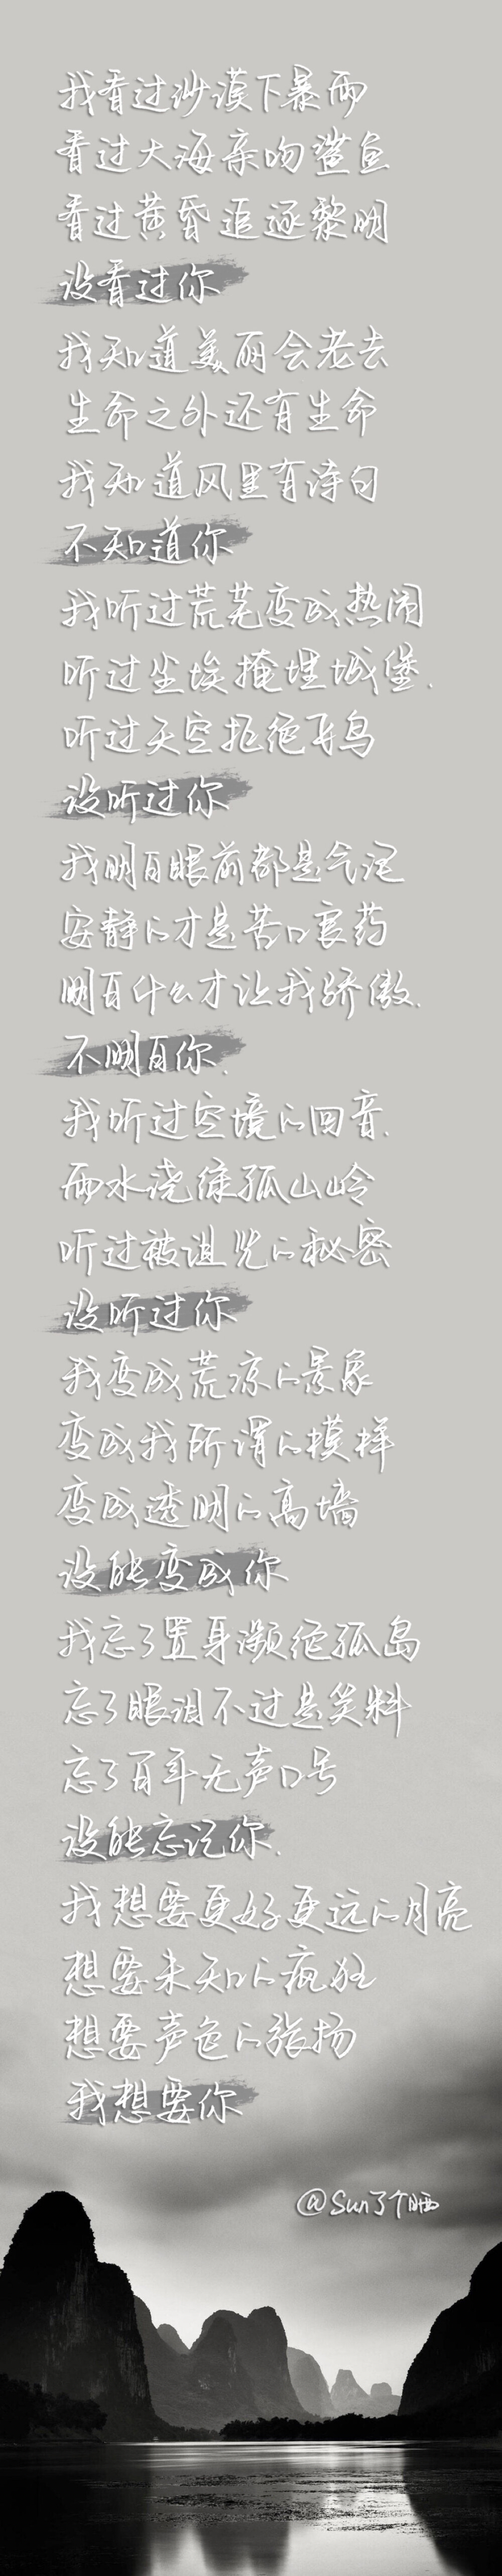 我看过沙漠下暴雨
看过大海亲吻鲨鱼
看过黄昏追逐黎明
没看过你
我知道美丽会老去
生命之外还有生命
我知道风里有诗句
不知道你
我听过荒芜变成热闹
听过尘埃掩埋城堡.
听过天空拒绝飞鸟
没听过你
我明白眼前都是气泡
安静的才是苦口良药
明白什么才让我骄傲.
不明白你.
我听过空境的回音.
雨水浇绿孤山岭
听过被诅咒的秘密
没听过你
我变成荒凉的景象
变成我所谓的模样
变成透明的高墙
没能变成你
我忘了置身濒绝孤岛
忘了眼泪不过是笑料
忘了百年无声口号
没能忘记你.
我想要更好更远的月亮
想要未知的疯狂
想要声色的张扬
我想要你
@Sun了个晒